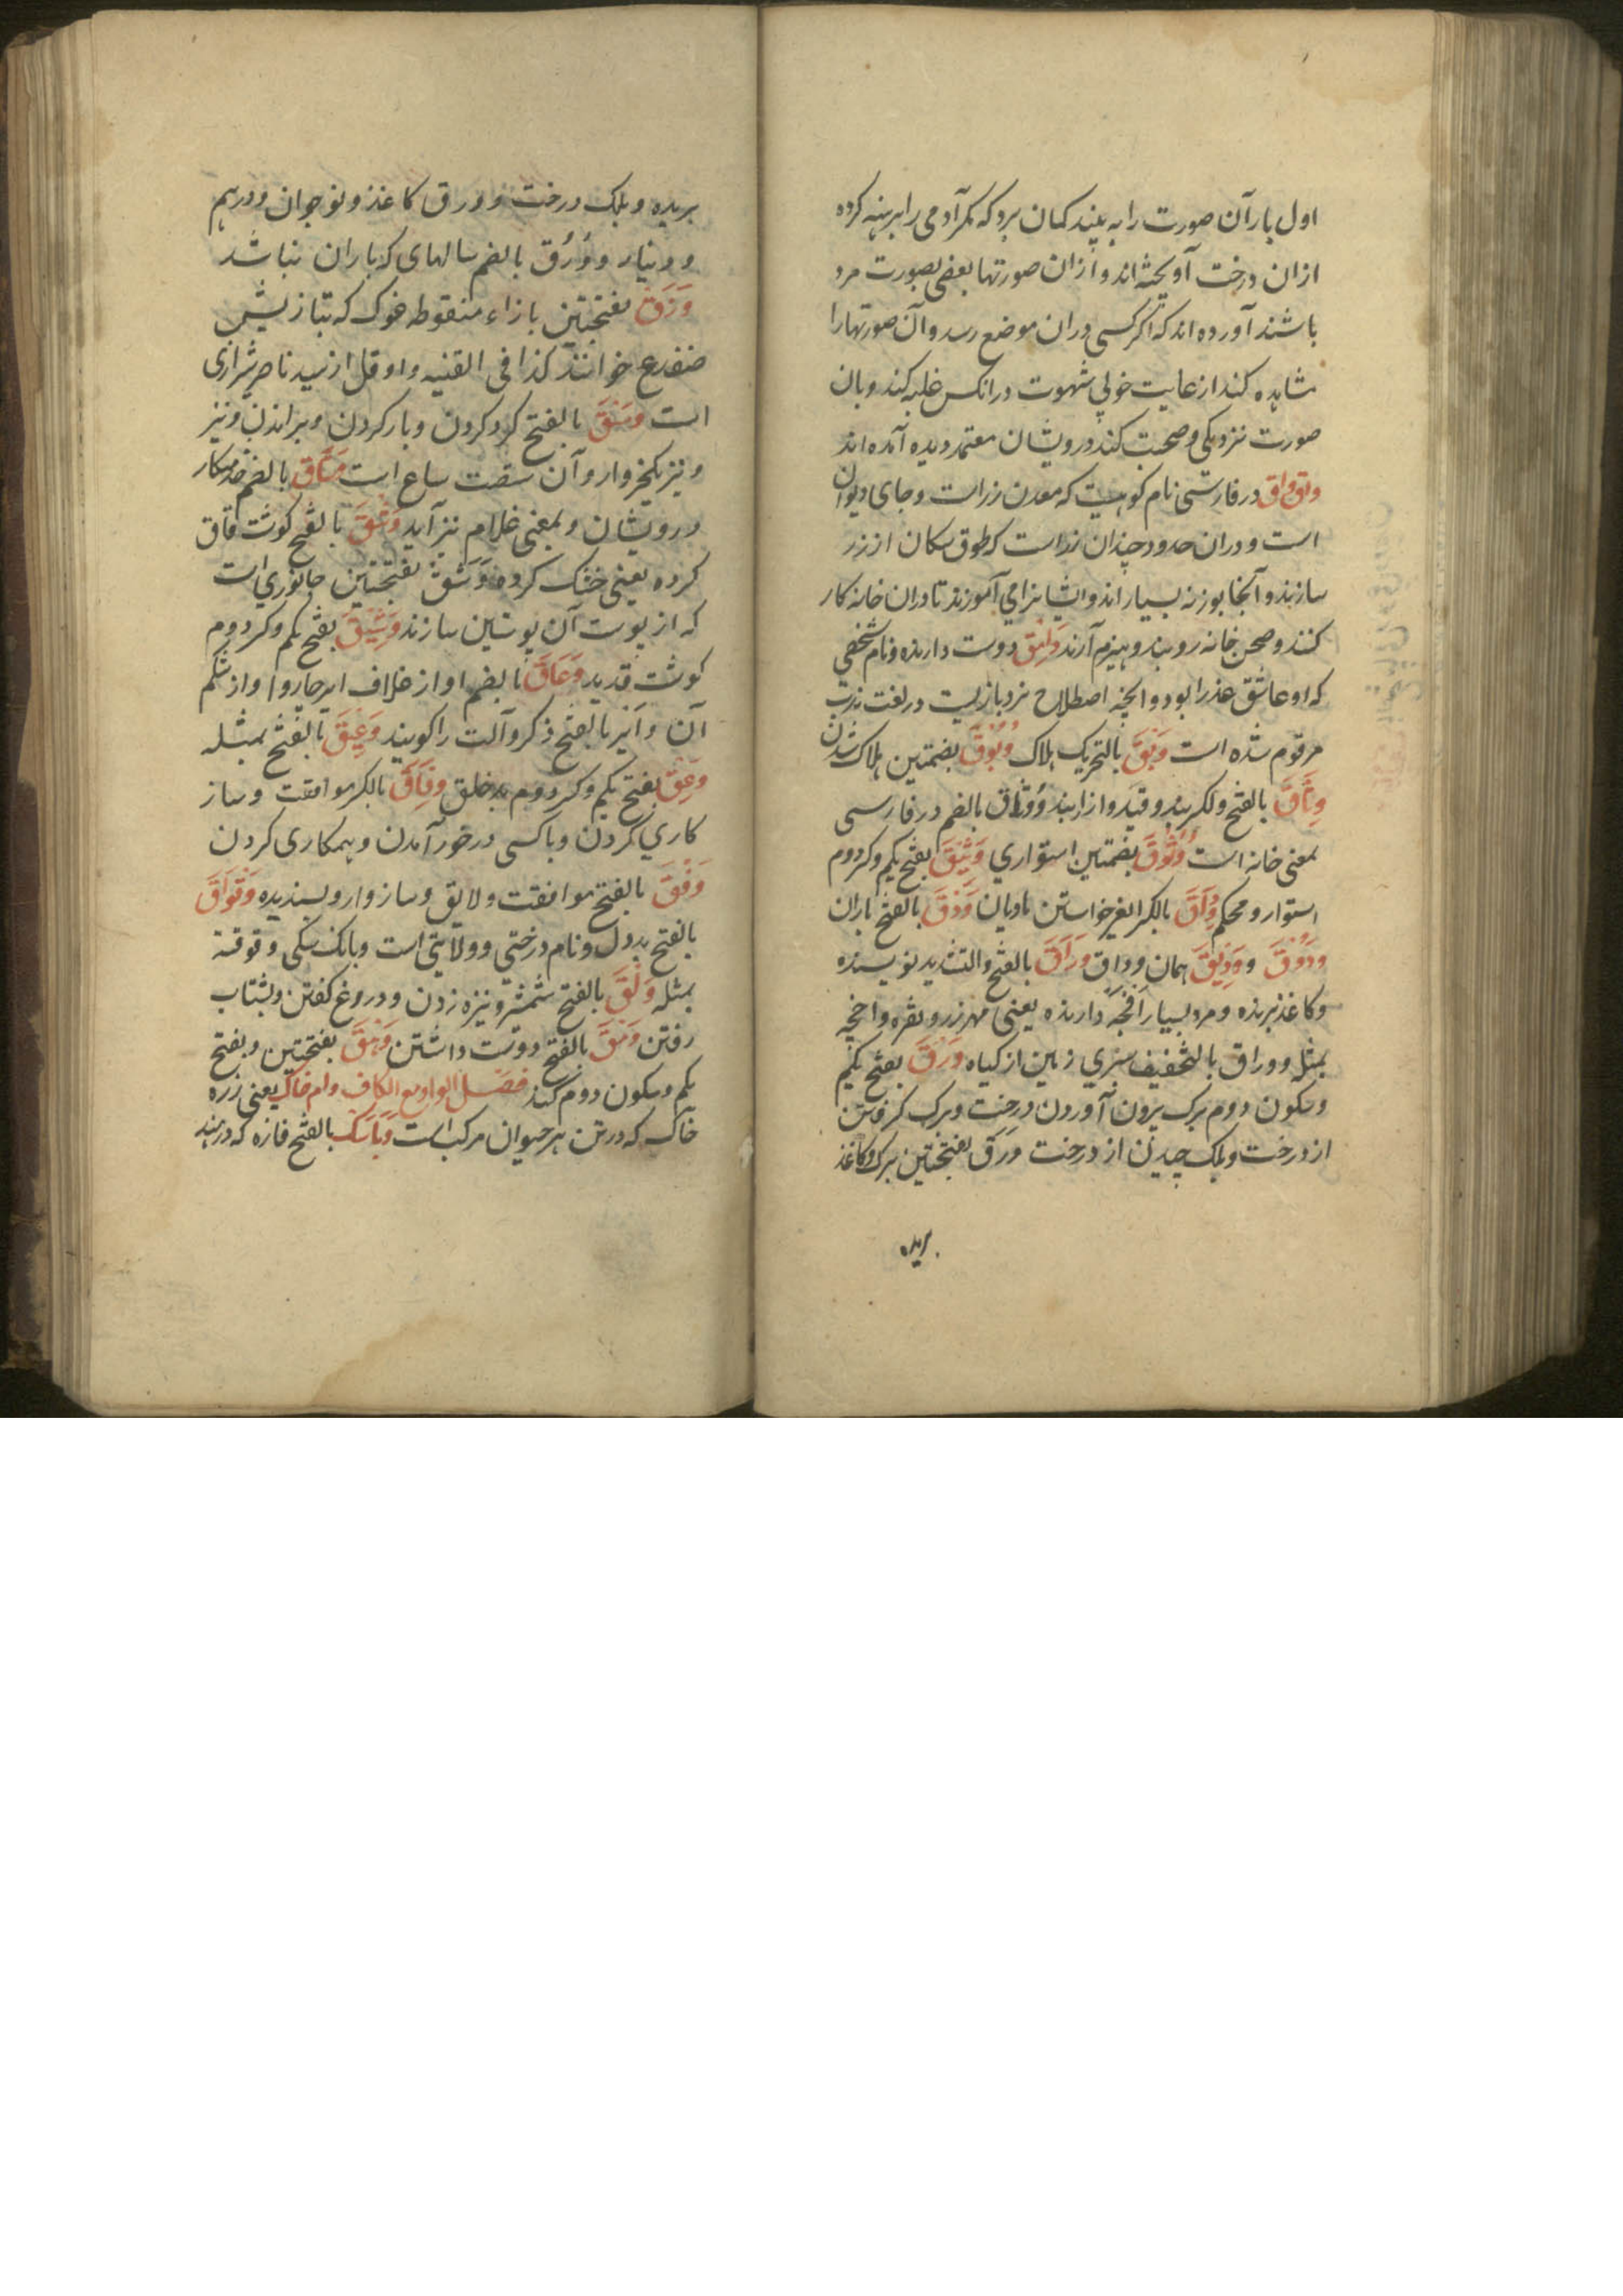 اول بار آن صورت را به بیند کمان برد که مکر آدمی را برهنه کرده
ازان درخت آویخته اند و ازان صورتها بعضی بصورت مرد
باشند آورده اند که اکر کسی دران موضع رسد و آن صورتها را
مشاهده کند از غایت خوبی شهوت درانکس غلبه کند و بان
صورت نزدیکی و صحبت کند و درویشان معتمد دیده آمده اند
وقواق در فارسی نام کوهیست که معدن زر است و جای دیوان
است و دران حدود چندان زر است که طوق سکان از زر
سازند و آنجا بوزنه بسیار اند و ایشانرا می آموزند تا دران خانه کار
کنند و صحن خانه روبند و هیزم آرند وامق دوست دارنده و نام شخصی
که او عاشق عذرا بود و آنچه اصطلاح نرد بازیست در لغت ندب
مرقوم شده است وَبَق بالتحریک هلاک وُبُوق بضمتین هلاک شدن
وِثَاق بالفتح ولکسر بند و قید و ازار بند و وُثاق بالضم در فارسی
بمعنی خانه است وُثُوق بضمتین استواری وَثِیق بفتح یکم و کسر دوم
استوار و محکم وِدَاق بالکسر خواستن مادیان وَدَق بالفتح باران
وُدُوق و وَدِیق همان وداق وَرَّاق بالفتح والتشدید نویسنده
و کاغذ برنده و مرد بسیار دارنده یعنی مهر زر و نقره
بمثله و وراق بالتخفیف سبزی زمین از کیاه وَرْق بفتح یکم
و سکون دوم برک برون آوردن درخت و برک کرفتن
از درخت و بلک چیدن از درخت وَرَق بفتحتین برک و کاغذ
بریده
بریده و بلک درخت و ورق کاغذ و نوجوان و درهم
و دینار و وُرْق بالضم سالهای که باران نباشد
وَزَق بفتحتین بازاء منقوطه غوک که بتازیش
ضفدع خوانند کذا فی القنیه و او نقل از سید ناصر شیرازی
است وَسْق بالفتح کرد کردن و بار کردن و براندن و نیز
و نیز یکخروار و آن شصت ساع است بالضم خدمتکار
درویشان و بمعنی غلام نیز آید وَشْق بالفتح کوشت قاق
کرده یعنی خشک کرده وَشَق بفتحتین جانوری است
که از پوست آن پوستین سازند وَشِیق بفتح یکم و کسر دوم
کوشت قدید وُعَاق بالضم
آن بالفتح ذکر و آلت را کویند وَعِیق بالفتح بمثله
وَعِق بفتح یکم و کسر دوم بد خلق وِفَاق بالکسر موافقت و ساز
کاری کردن و با کسی در خور آمدن و همکاری کردن
وَفْق بالفتح موافقت و لایق و سازوار و پسندیده وَقْوَاق
بالفتح بد دل و نام درختی و ولایتی است و بانک سکی و قوقته
بمثله وَلْق بالفتح شمشیر و نیزه زدن و دروغ کفتن و بشتاب
رفتن وَمْق بالفتح دوست داشتن وَهَق بفتحتین و بفتح
یکم و سکون دوم کمند فصل الواو مع الکاف وام خاک یعنی ذره
خاک که در تن هر حیوان مرکب است وَبَاسَک بالفتح فازه که درهند